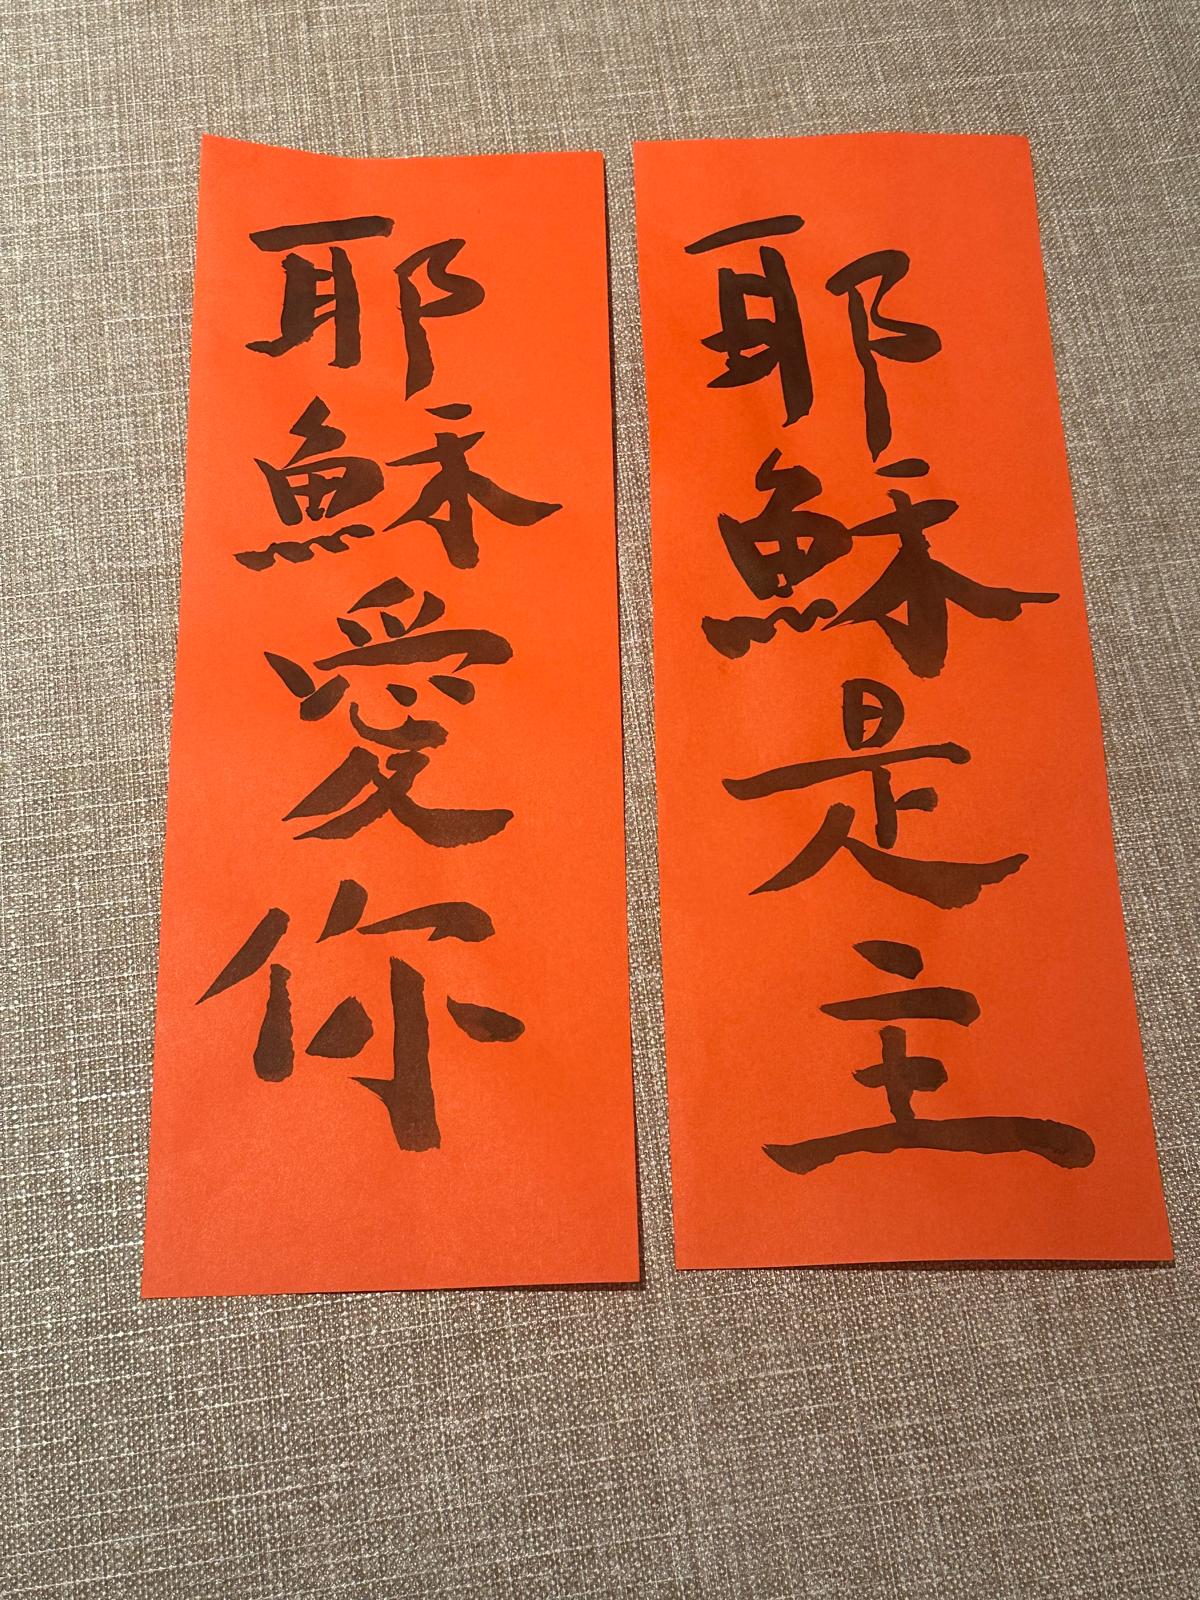 耶穌是主
耶穌愛你